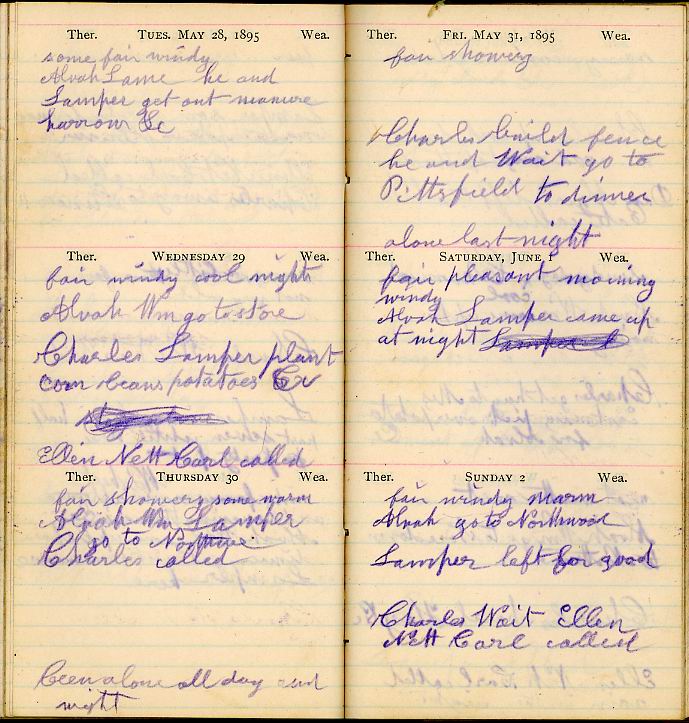 Ther. TUES. MAY 28, 1895 Wea.
some fair windy
Alvah Lame he and
Lamper get out manure
harrow &c
Ther. WEDNESDAY 29 Wea.
fair windy cool nights
Alvah Wm go to store
Charles Lamper plant
corn beans potatoes &c
Ellen Nett Carl called
Ther. THURSDAY 30 Wea.
fair showery some warm
Alvah Wm Lamper
go to
Charles called
been alone all day and
night
Ther. FRI. MAY 31, 1895 Wea.
fair showery
Charles build fence
he and Wait go to
Pittsfield to dinner
alone last night
Ther. SATURDAY, JUNE 1 Wea.
fair pleasant morning
windy
Alvah Lamper came up
at night
Ther. SUNDAY 2 Wea.
fair windy warm
Alvah go to Northwood
Lamper left for good
Charles Wait Ellen
Nett Carl called